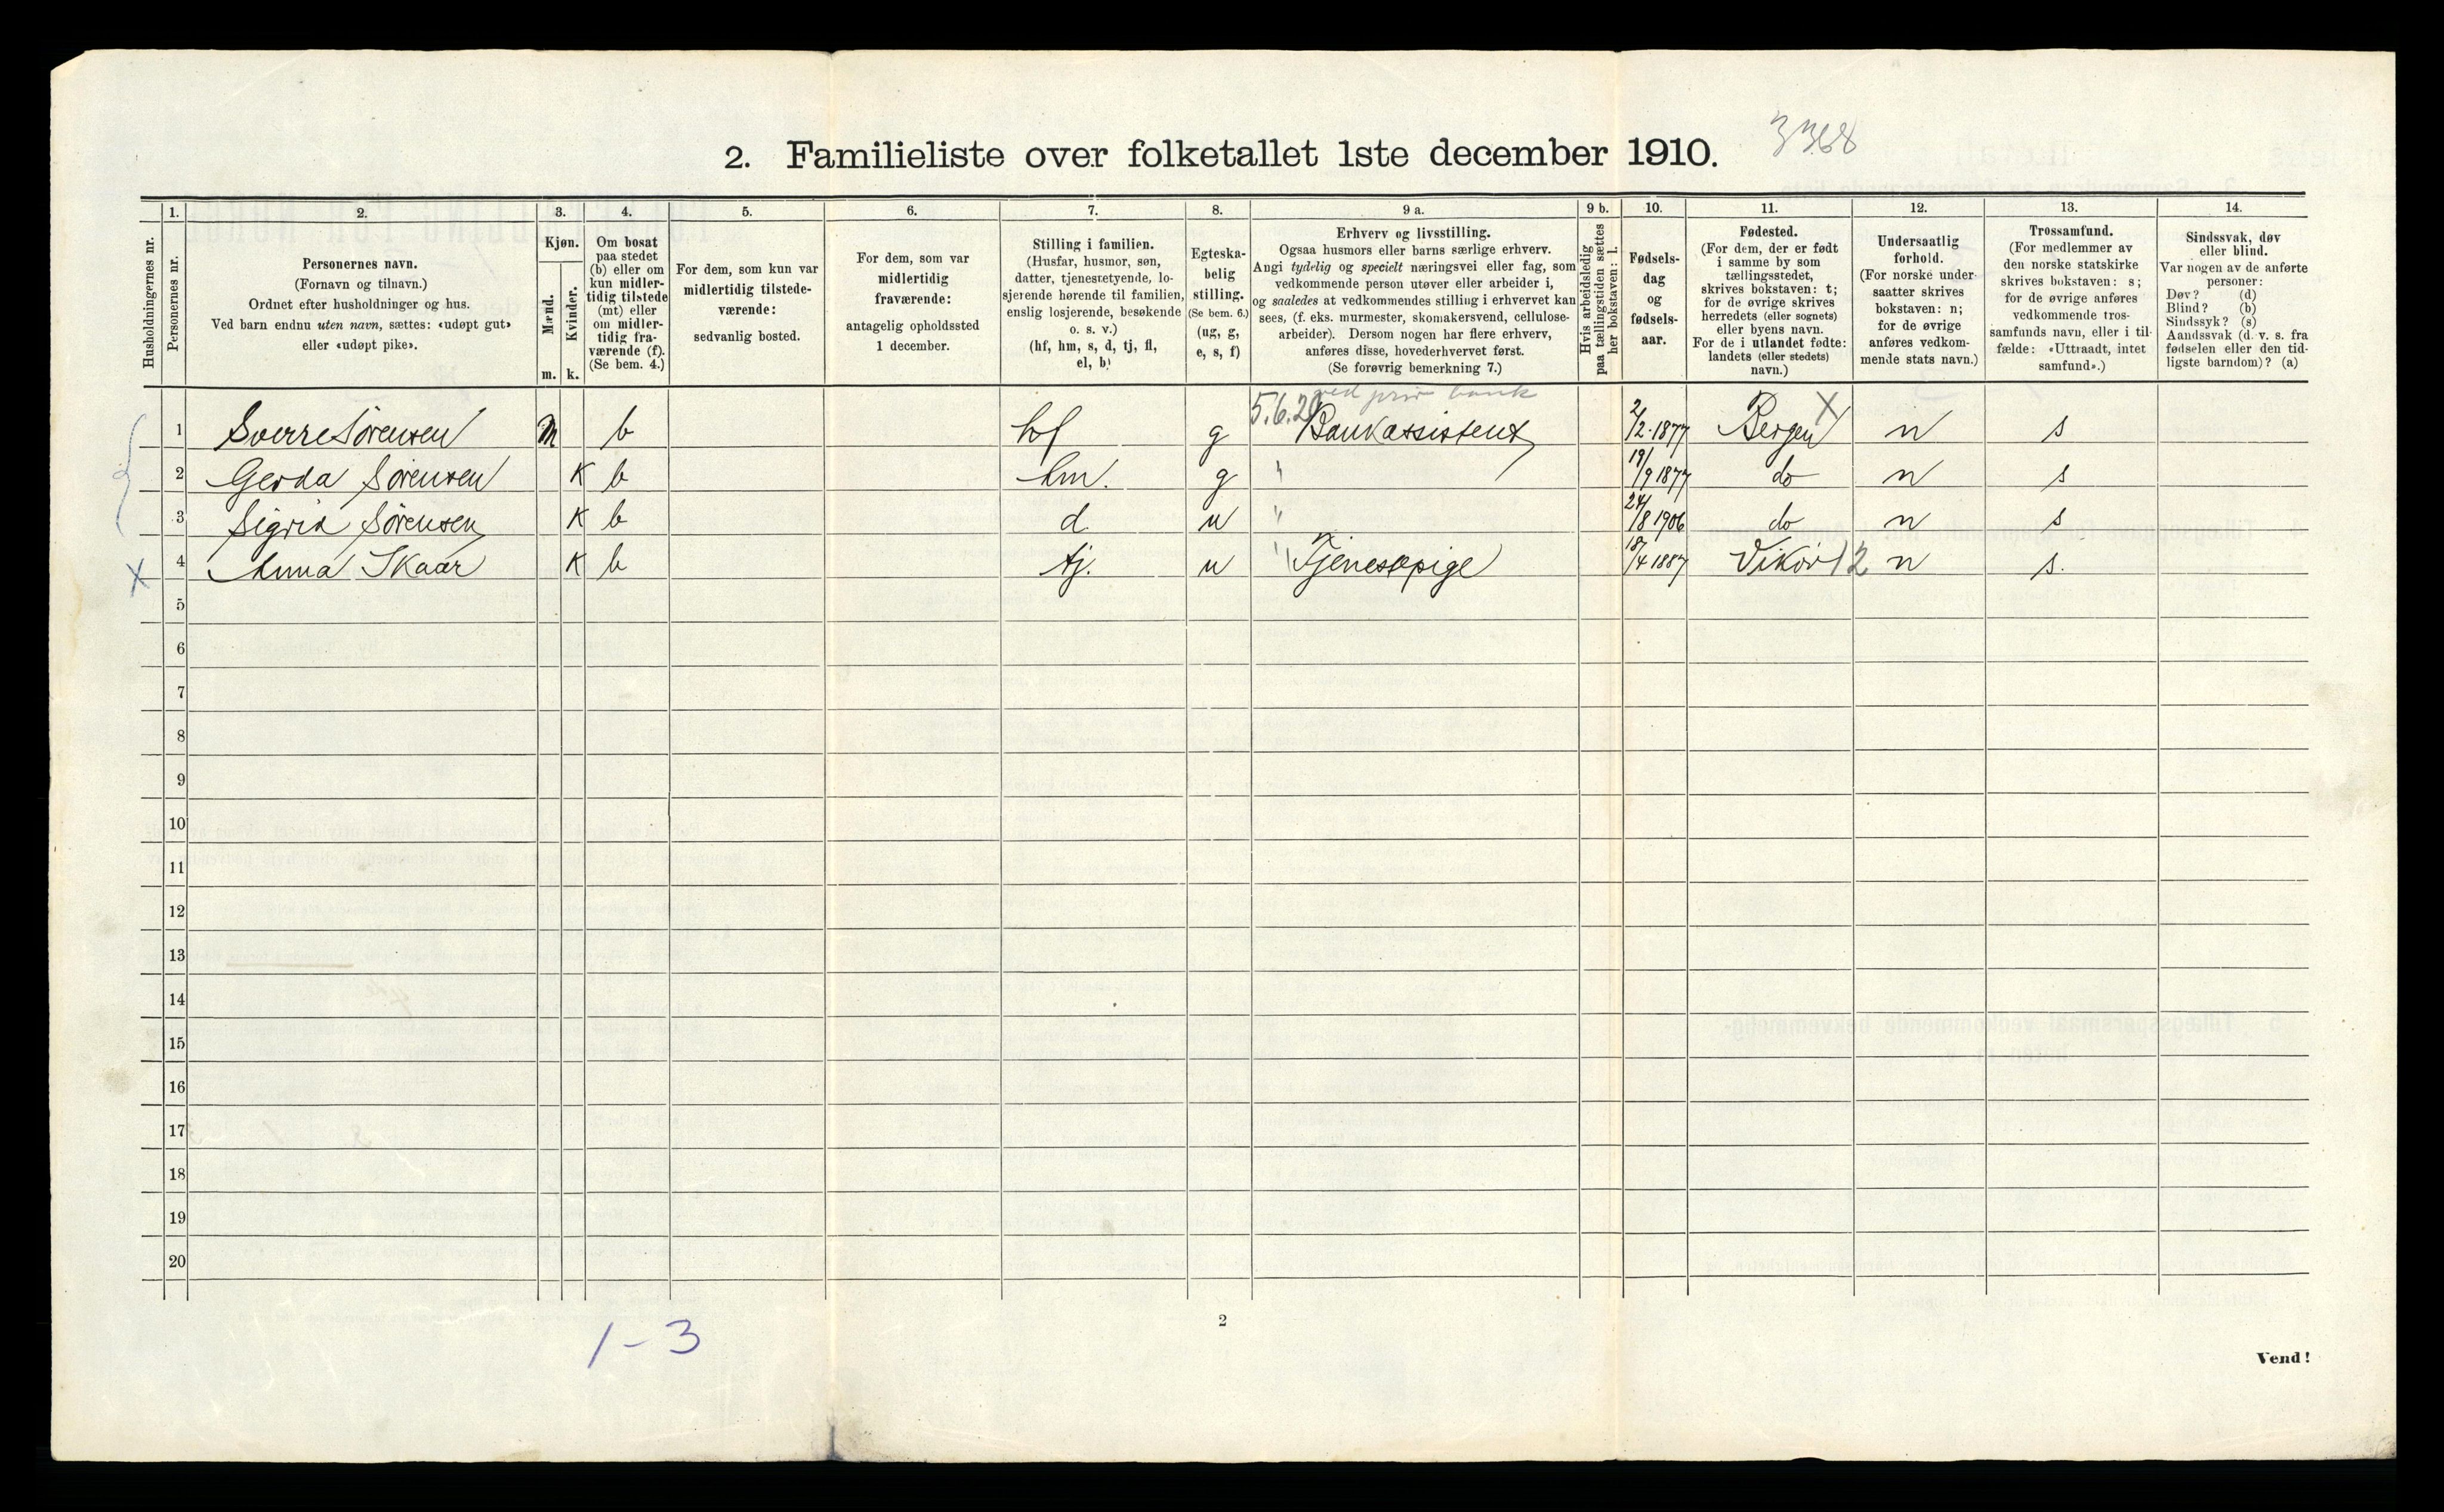 2. Familieliste over folketallet 1ste december 1910. 3368
Husholdningernes nr.
1. Personernes nr.
2. Personernes navn.
(Fornavn og tilnavn.)
Ordnet efter husholdninger og hus.
Ved barn endnu uten navn, sættes: «udøpt gut»
eller «udøpt pike».
3. Kjøn.
Mænd. Kvinder.
m. k.
4. Om bosat
paa stedet
(b) eller om
kun midler-
tidig tilstede
(mt) eller
om midler-
tidig fra-
værende (f).
(Se bem. 4.)
5. For dem, som kun var
midlertidig tilstede-
værende:
sedvanlig bosted.
6. For dem, som var
midlertidig
fraværende:
antagelig opholdssted
1 december.
7. Stilling i familien.
(Husfar, husmor, søn,
datter, tjenestetyende, lo-
sjerende hørende til familien,
enslig losjerende, besøkende
o. s. v.)
(hf, hm, s, d, tj, fl,
el, b)
8. Egteska-
belig
stilling.
(Se bem. 6.)
(ug, g,
e, s, f)
9 a. Erhverv og livsstilling.
Ogsaa husmors eller barns særlige erhverv.
Angi tydelig og specielt næringsvei eller fag, som
vedkommende person utøver eller arbeider i,
og saaledes at vedkommendes stilling i erhvervet kan
sees, (f. eks. murmester, skomakersvend, cellulose-
arbeider). Dersom nogen har flere erhverv,
anføres disse, hovederhvervet først.
(Se forøvrig bemerkning 7.)
9 b. Hvis arbeidsledig
paa tællingstiden sættes
her bokstaven: l.
10. Fødsels-
dag
og
fødsels-
aar.
11. Fødested.
(For dem, der er født
i samme by som
tællingsstedet,
skrives bokstaven: t;
for de øvrige skrives
herredets (eller sognets)
eller byens navn.
For de i utlandet fødte:
landets (eller stedets)
navn.)
12. Undersaatlig
forhold.
(For norske under-
saatter skrives
bokstaven: n;
for de øvrige
anføres vedkom-
mende stats navn.)
13. Trossamfund.
(For medlemmer av
den norske statskirke
skrives bokstaven: s;
for de øvrige anføres
vedkommende tros-
samfunds navn, eller i til-
fælde: «Uttraadt, intet
samfund».)
14. Sindssvak, døv
eller blind.
Var nogen av de anførte
personer:
Døv? (d)
Blind? (b)
Sindssyk? (s)
Aandssvak (d. v. s. fra
fødselen eller den tid-
ligste barndom)? (a)
ved priv bank
1 Sverre Sörensen m b hf g Bankassistent 2/2-1877 Bergen X n s
2 Gerda Sörensen K b hm. g " 19/9 1877 do n s
3 Sigrid Sörensen K b d u " 24/8 1906 do n s
X 4 Anna Skaar K b tj. u " Tjenestepige 18/4 1887 Vikör 12 n s.
5
6
7
8
9
10
11
12
13
14
15
16
17
18
19
20
2
1-3
Vend!